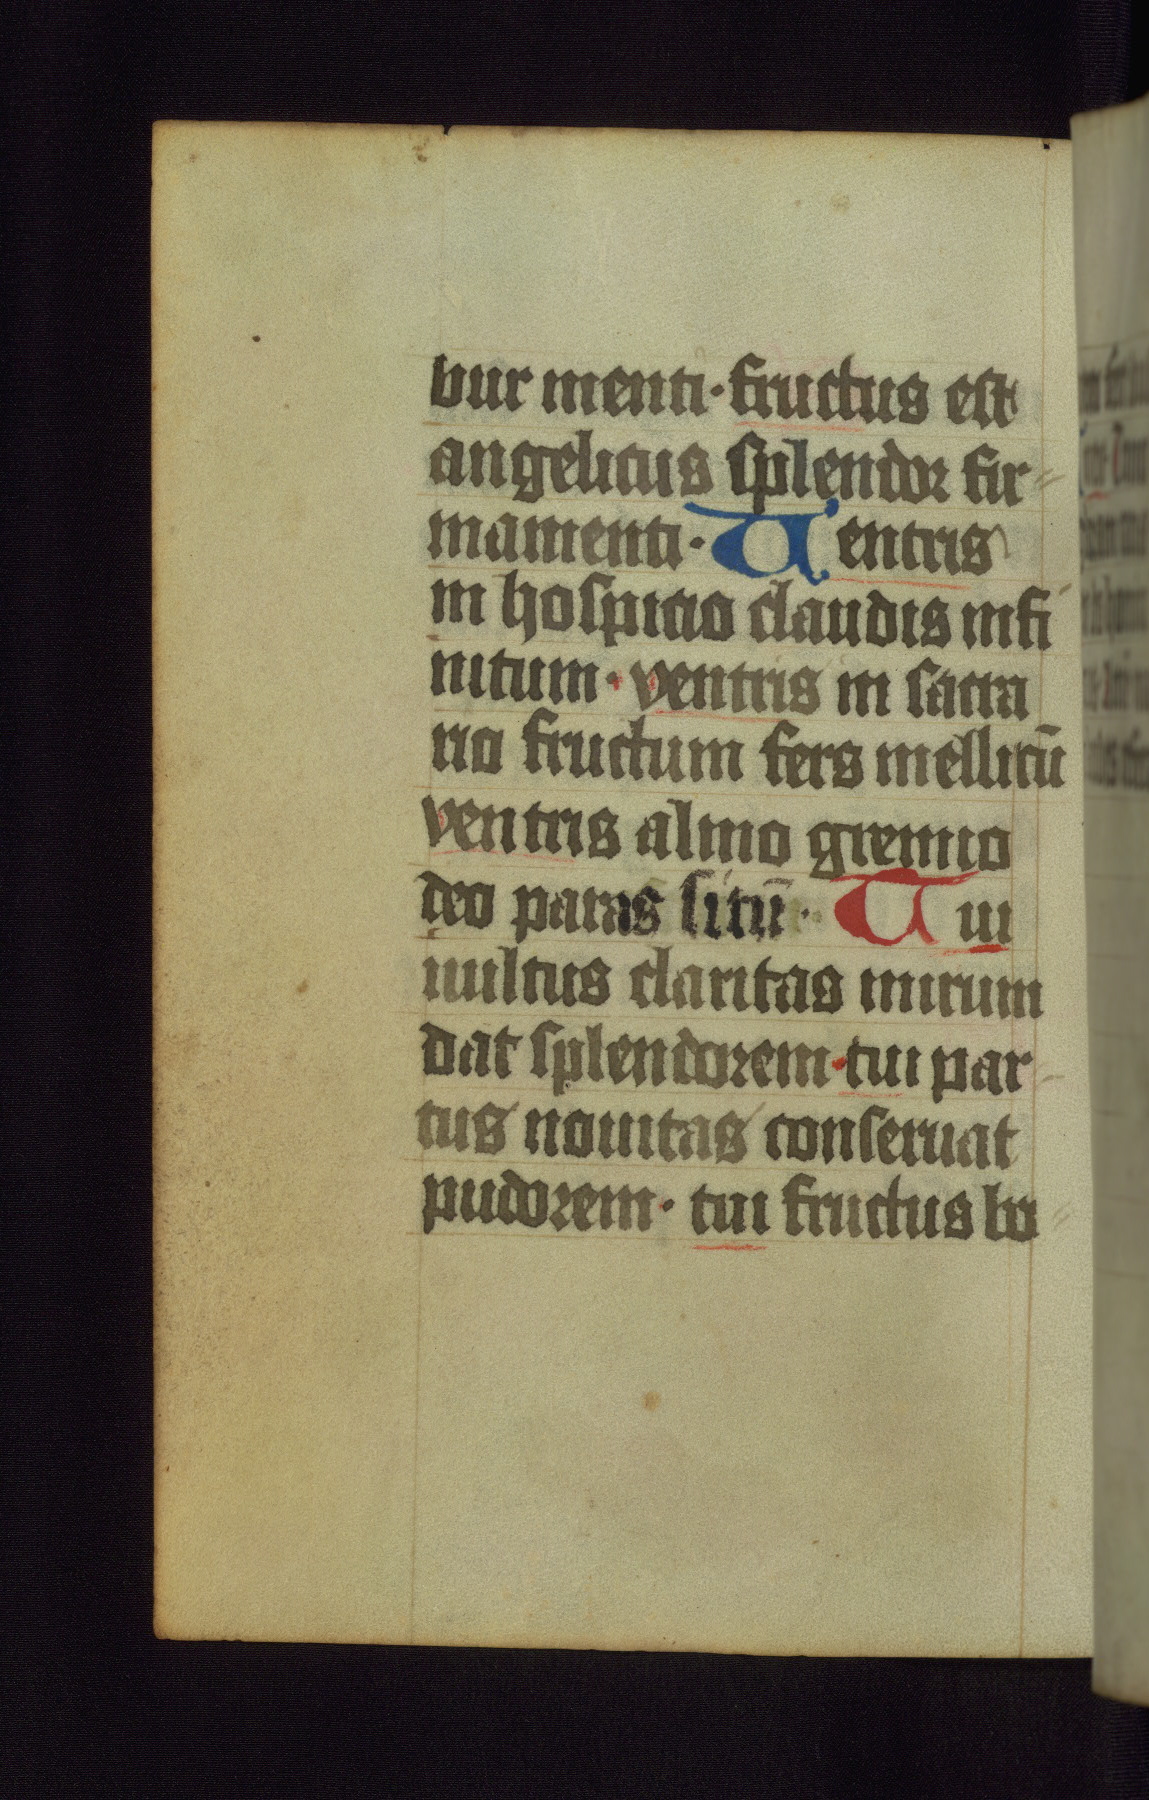 bur menti · fructus est
angelicus splendor fir
mamenti · Uentris
in hospitio claudis infi
nitum · ventris in sacra
rio fructum fers mellitū
ventris almo gremio
deo paras sitū · Tui
uultus claritas mirum
dat splendorem · tui par
tus nouitas conseruat
pudorem · tui fructus bo